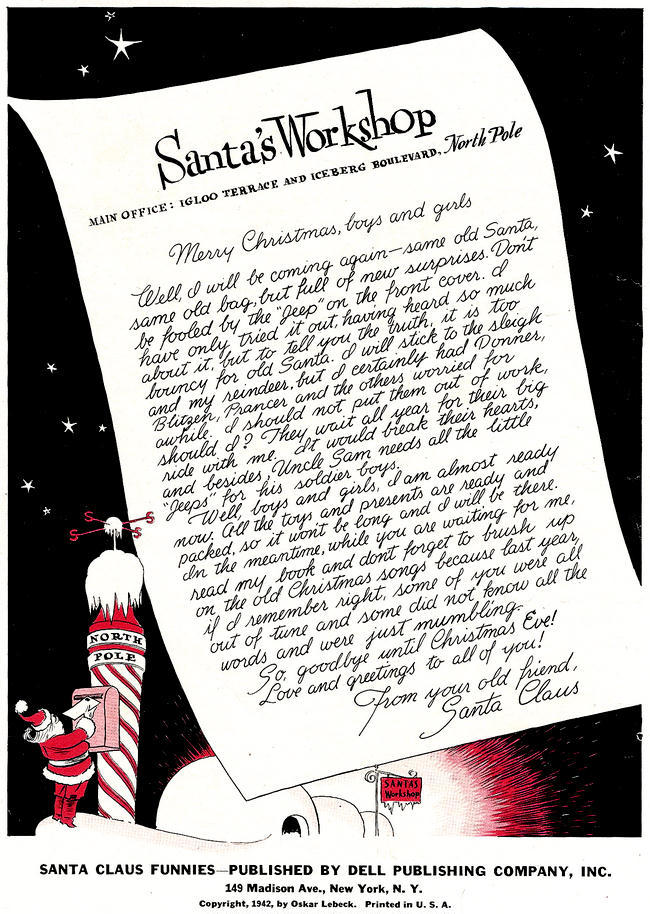 Santa's Workshop
MAIN OFFICE: IGLOO TERRACE AND ICEBERG BOULEVARD, North Pole
Merry Christmas, boys and girls
Well, I will be coming again—same old Santa,
same old bag, but full of new surprises. Don't
be fooled by the "Jeep" on the front cover. I
have only tried it out, having heard so much
about it, but to tell you the truth, it is too
bouncy for old Santa. I will stick to the sleigh
and my reindeer, but I certainly had Donner,
Blitzen, Prancer and the others worried for
awhile. I should not put them out of work,
should I? They wait all year for their big
ride with me. It would break their hearts,
and besides, Uncle Sam needs all the little
"Jeeps" for his soldier boys.
Well, boys and girls, I am almost ready
now. All the toys and presents are ready and
packed, so it won't be long and I will be there.
In the meantime, while you are waiting for me,
read my book and dont forget to brush up
on the old Christmas songs because last year,
if I remember right, some of you were all
out of tune and some did not know all the
words and were just mumbling.
So, goodbye until Christmas Eve!
Love and greetings to all of you!
From your old friend,
Santa Claus
S
S
S
S
NORTH
POLE
SANTA'S
Workshop
SANTA CLAUS FUNNIES—PUBLISHED BY DELL PUBLISHING COMPANY, INC.
149 Madison Ave., New York, N. Y.
Copyright, 1942, by Oskar Lebeck. Printed in U. S. A.